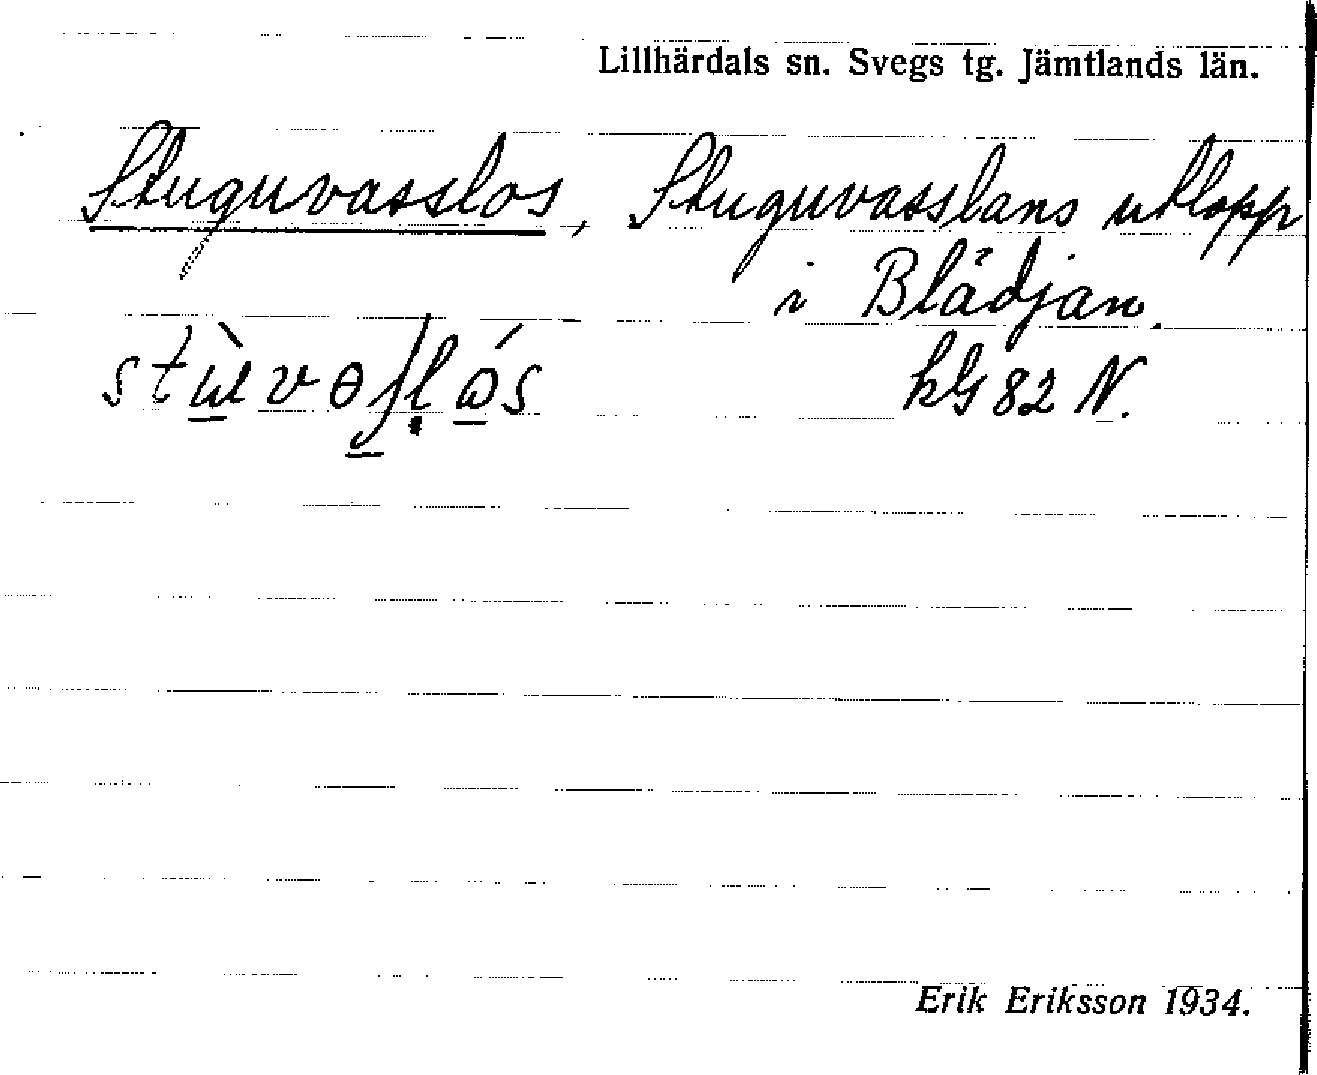 Lillhärdals sn. Svegs tg. Jämtlands län.
Stuguvasslos, Stuguvasslans utlopp
i Blädjan.
kG 82 N.
Erik Eriksson 1934.